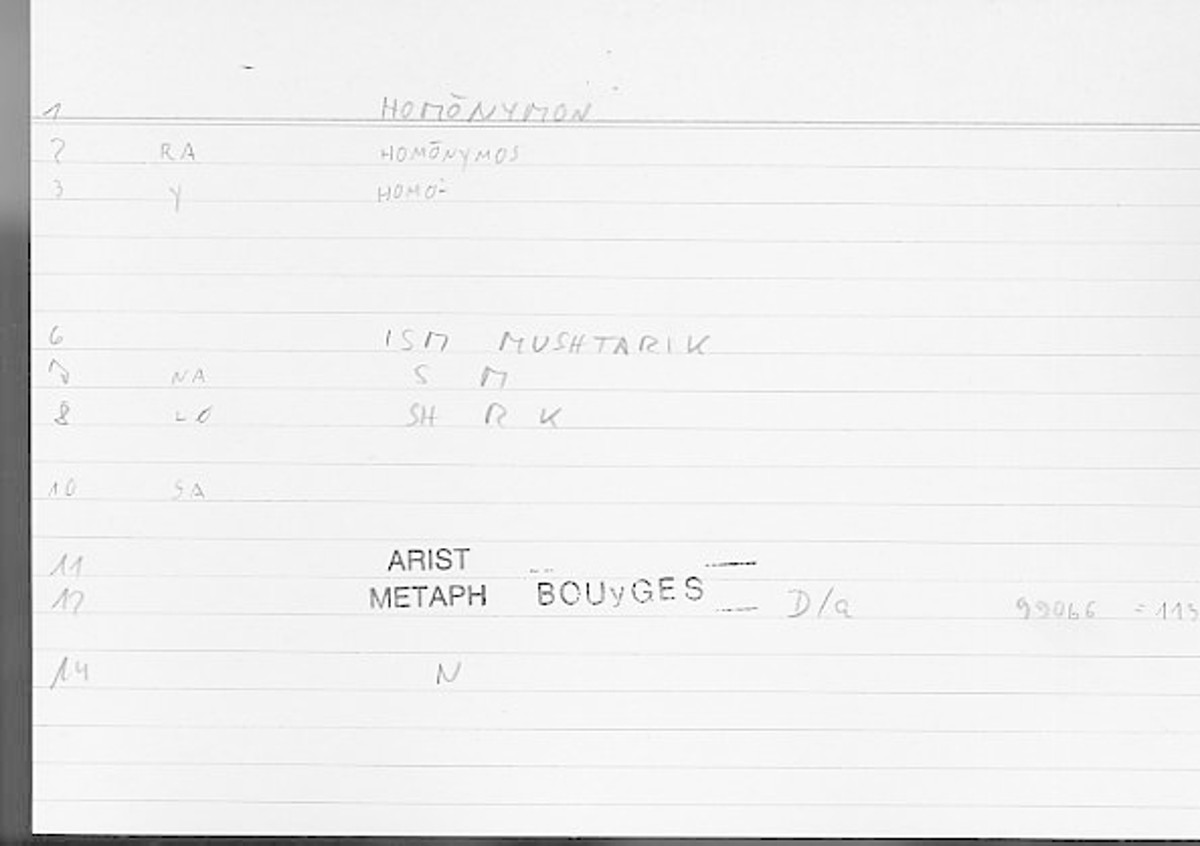 1 HOMŌNYMON
2 RA HOMŌNYMOS
3 Y HOMO-
6 ISM MUSHTARIK
7 NA S M
8 LO SH R K
10 SA
11 ARIST
12 METAPH BOUyGES D/a 99066 = 113
14 N